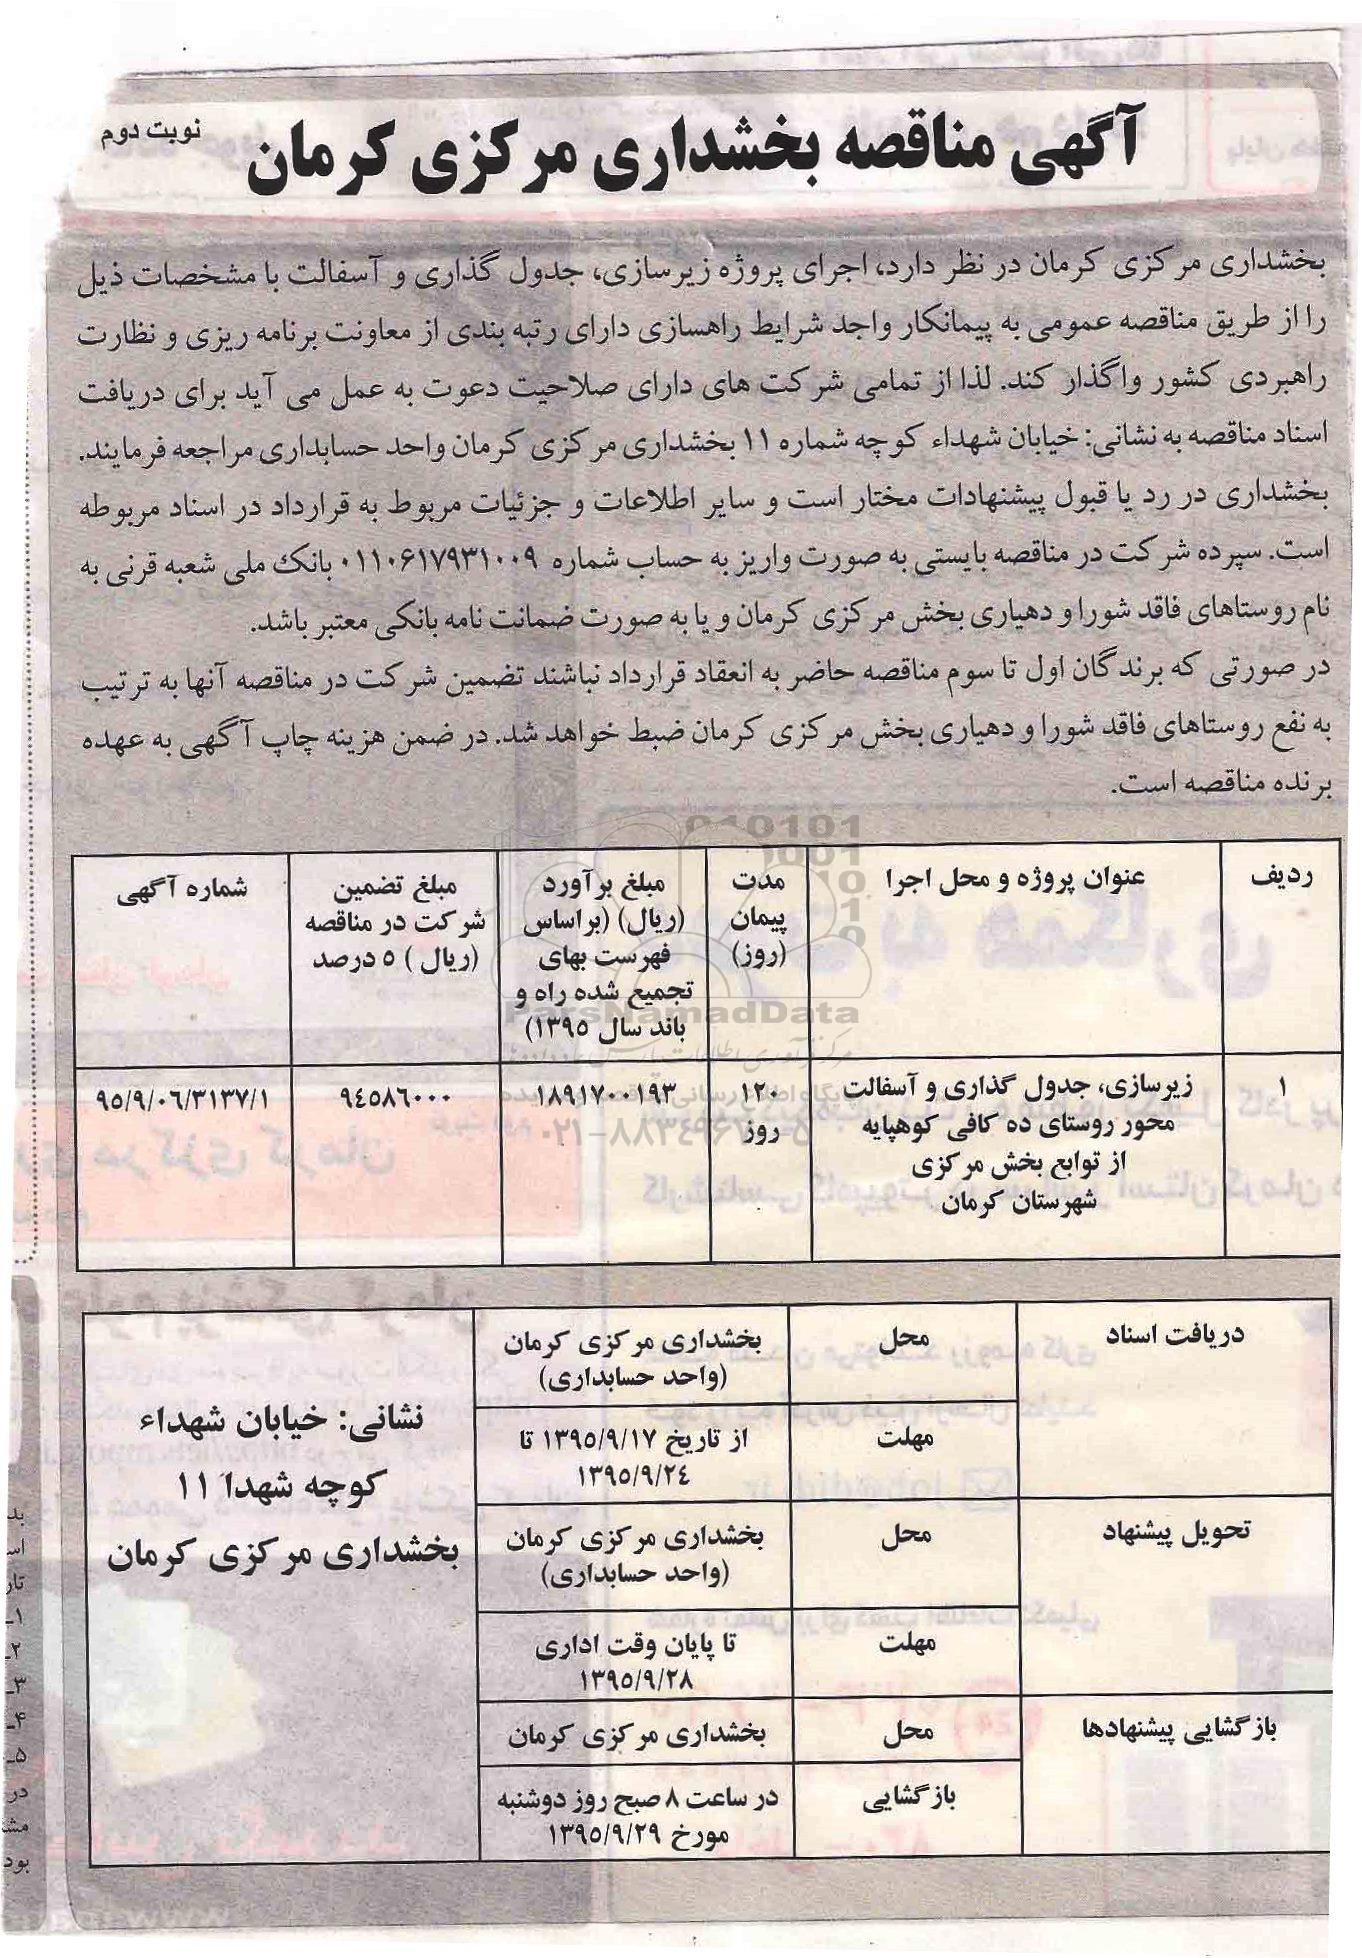 آگهی مناقصه بخشداری مرکزی کرمان
نوبت دوم
بخشداری مرکزی کرمان در نظر دارد، اجرای پروژه زیرسازی، جدول گذاری و آسفالت با مشخصات ذیل
را از طریق مناقصه عمومی به پیمانکار واجد شرایط راهسازی دارای رتبه بندی از معاونت برنامه ریزی و نظارت
راهبردی کشور واگذار کند. لذا از تمامی شرکت های دارای صلاحیت دعوت به عمل می آید برای دریافت
اسناد مناقصه به نشانی: خیابان شهداء کوچه شماره ۱۱ بخشداری مرکزی کرمان واحد حسابداری مراجعه فرمایند.
بخشداری در رد یا قبول پیشنهادات مختار است و سایر اطلاعات و جزئیات مربوط به قرارداد در اسناد مربوطه
است. سپرده شرکت در مناقصه بایستی به صورت واریز به حساب شماره ۰۱۱۰۶۱۷۹۳۱۰۰۹ بانک ملی شعبه قرنی به
نام روستاهای فاقد شورا و دهیاری بخش مرکزی کرمان و یا به صورت ضمانت نامه بانکی معتبر باشد.
در صورتی که برندگان اول تا سوم مناقصه حاضر به انعقاد قرارداد نباشند تضمین شرکت در مناقصه آنها به ترتیب
به نفع روستاهای فاقد شورا و دهیاری بخش مرکزی کرمان ضبط خواهد شد. در ضمن هزینه چاپ آگهی به عهده
برنده مناقصه است.
ردیف
عنوان پروژه و محل اجرا
مدت
پیمان
(روز)
مبلغ برآورد
(ریال) (براساس
فهرست بهای
تجمیع شده راه و
باند سال ۱۳۹۵)
مبلغ تضمین
شرکت در مناقصه
(ریال ) ۵ درصد
شماره آگهی
۱
زیرسازی، جدول گذاری و آسفالت
محور روستای ده کافی کوهپایه
از توابع بخش مرکزی
شهرستان کرمان
۱۲۰
روز
۱۸۹۱۷۰۰۱۹۳
۹۴۵۸۶۰۰۰
۹۵/۹/۰۶/۳۱۳۷/۱
ParsNamadData
۰۲۱-۸۸۳۴۹۶۷۰-۵
دریافت اسناد
محل
بخشداری مرکزی کرمان
(واحد حسابداری)
مهلت
از تاریخ ۱۳۹۵/۹/۱۷ تا
۱۳۹۵/۹/۲۴
تحویل پیشنهاد
محل
بخشداری مرکزی کرمان
(واحد حسابداری)
مهلت
تا پایان وقت اداری
۱۳۹۵/۹/۲۸
بازگشایی پیشنهادها
محل
بخشداری مرکزی کرمان
بازگشایی
در ساعت ۸ صبح روز دوشنبه
مورخ ۱۳۹۵/۹/۲۹
نشانی: خیابان شهداء
کوچه شهدا ۱۱
بخشداری مرکزی کرمان